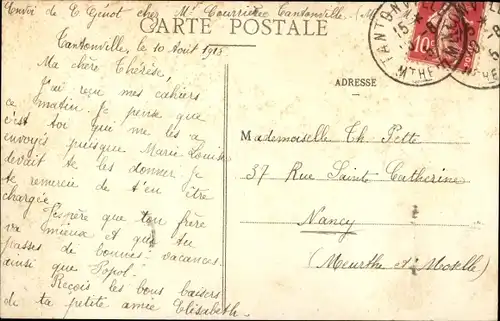 Envoi de E Génot chez Mr Courrietre Tantonville (M
CARTE POSTALE
Tantonville, le 10 Août 1913
Ma chère Thérèse,
J'ai reçu mes cahiers
ce matin. Je pense que
c'est toi qui me les a
envoyés puisque Marie Louise
devait te les donner. Je
te remercie de t'en être
chargée.
J'espère que ton frère
va mieux et que tu
passes de bonnes vacances
ainsi que Popol.
Reçois les bons baisers
de ta petite amie Elisabeth.
TANTONVILLE
15
10c
ADRESSE
Mademoiselle Th. Pette
37 Rue Saint Catherine
Nancy
(Meurthe et Moselle)